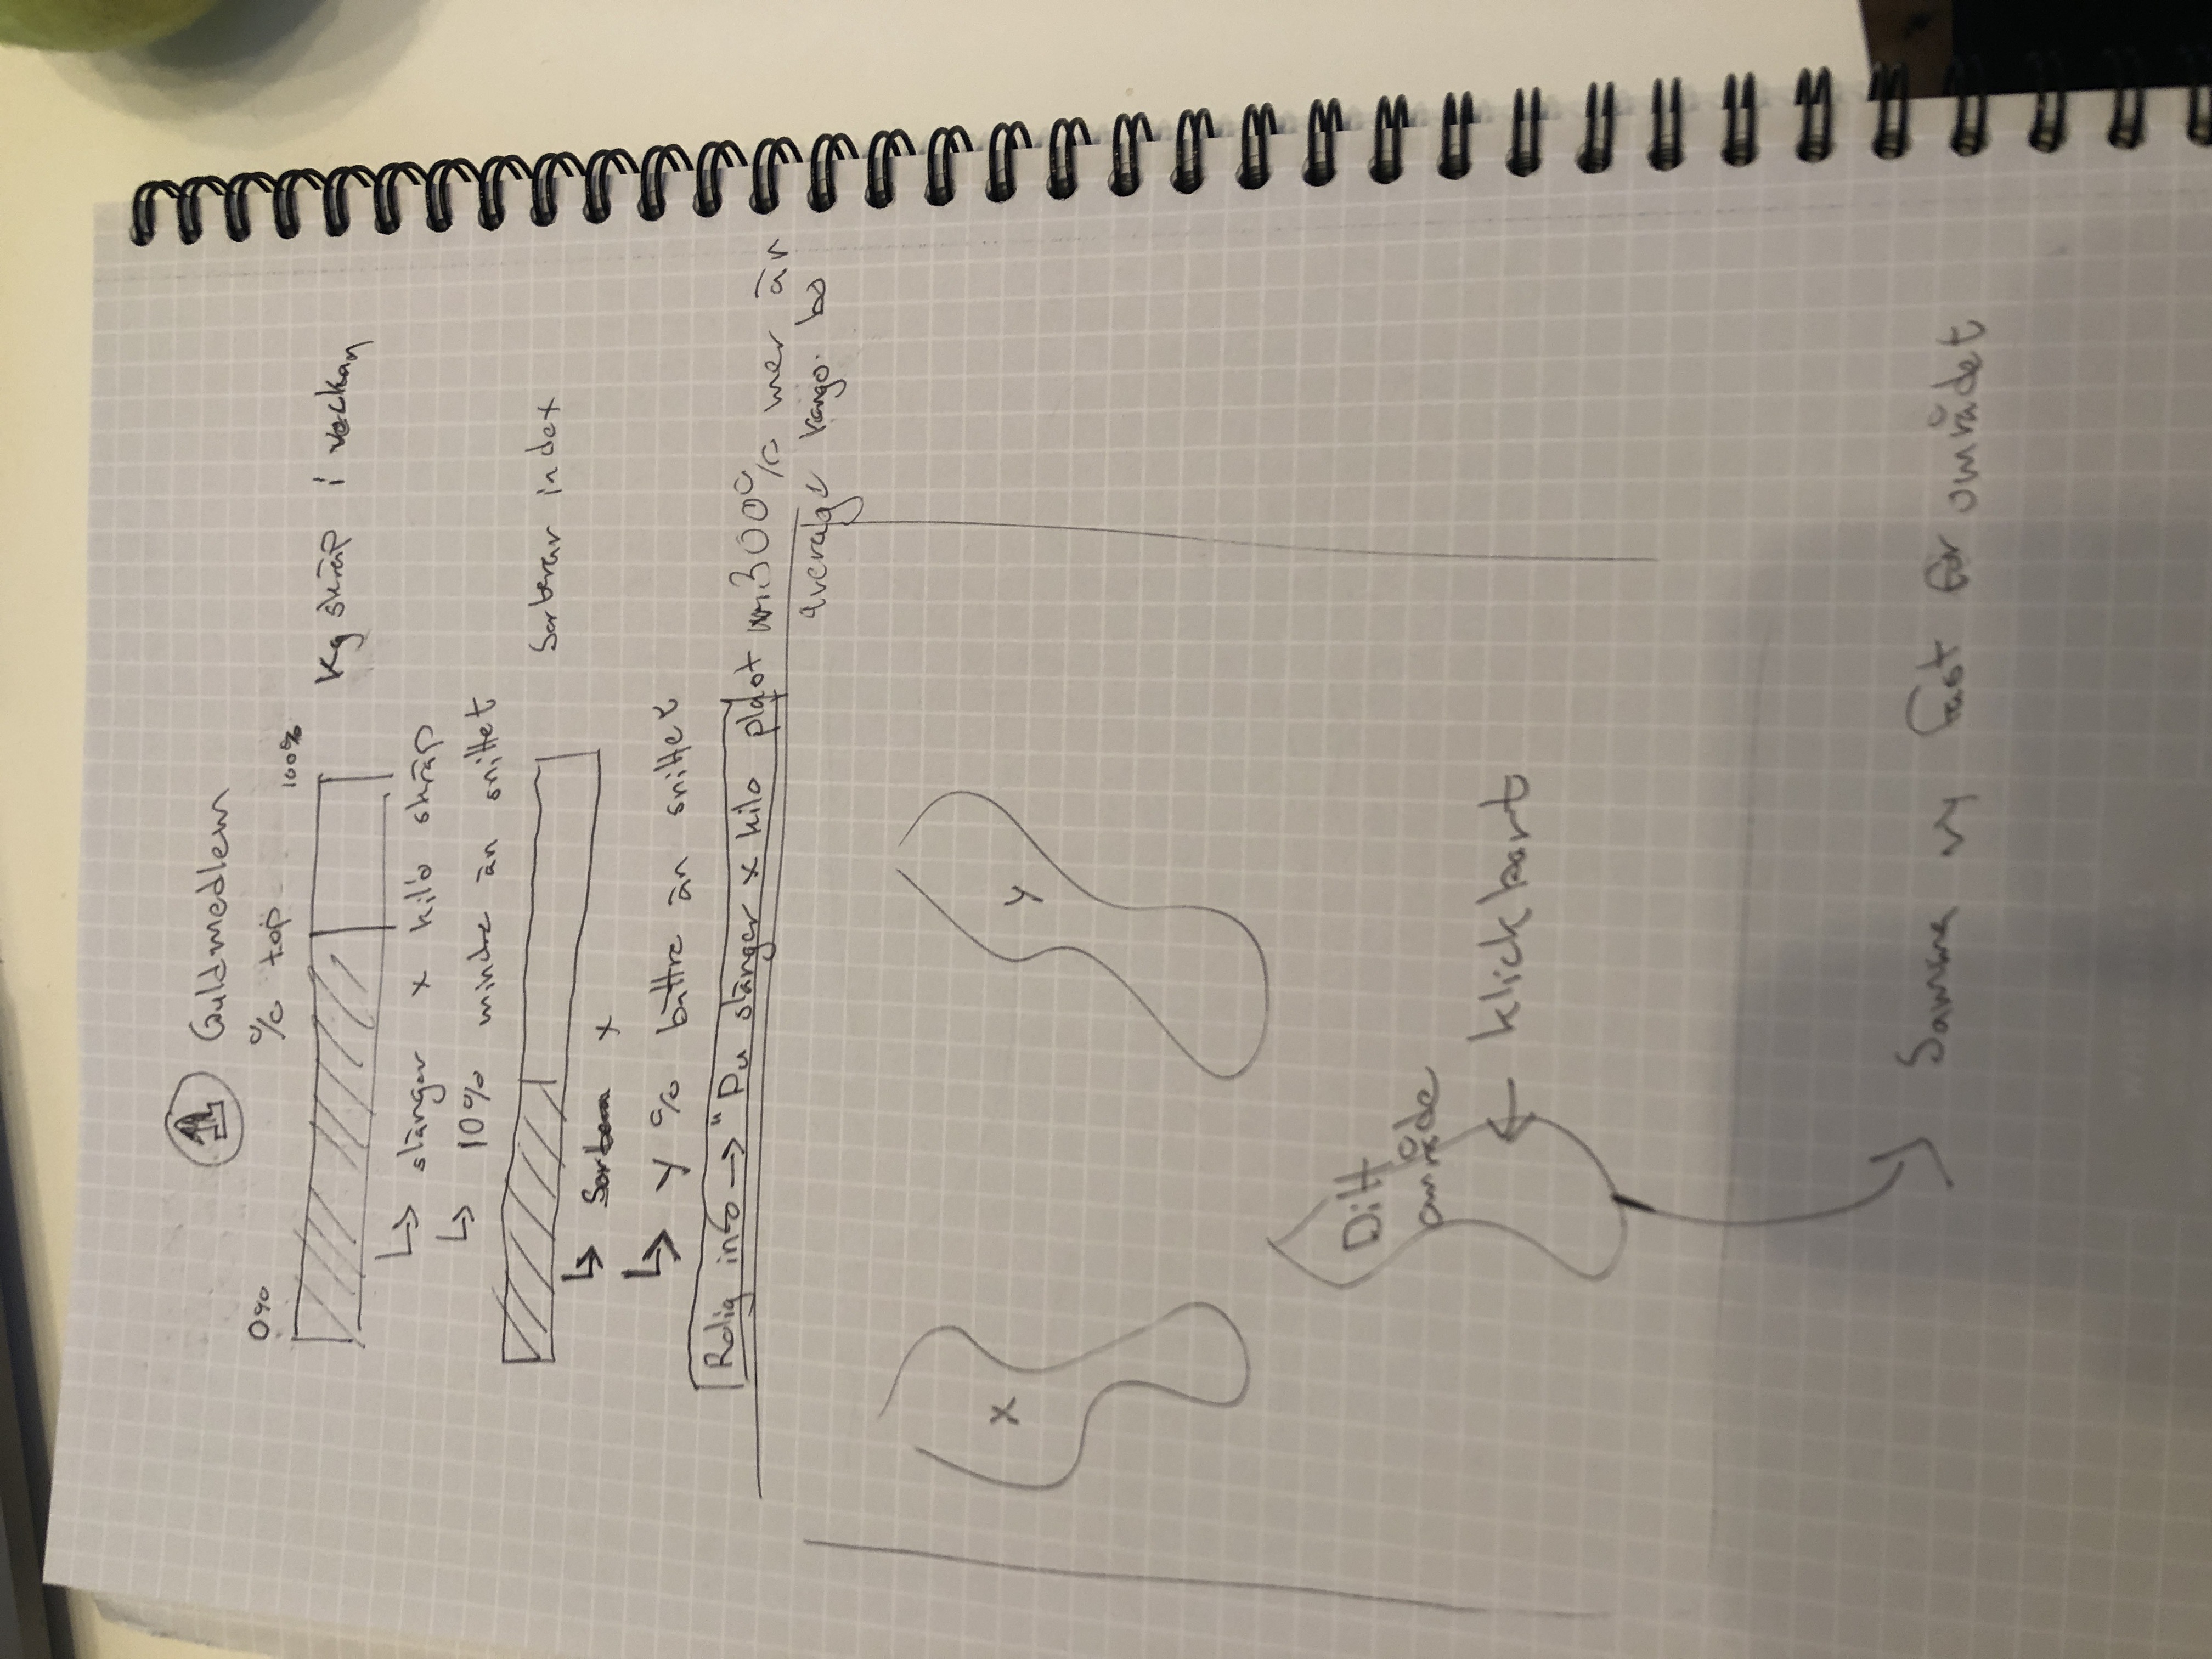 1 Guldmedlem
0% % top 100%
Kg skräp i veckan
↳ slänger x kilo skräp
↳ 10% mindre än snittet
Sorterar index
↳ x
↳ y % bättre än snittet
Rolig info → "Du slänger x kilo plast 300% mer än
average bo
x y
Ditt
område
← klickbart
Samma vy fast för området